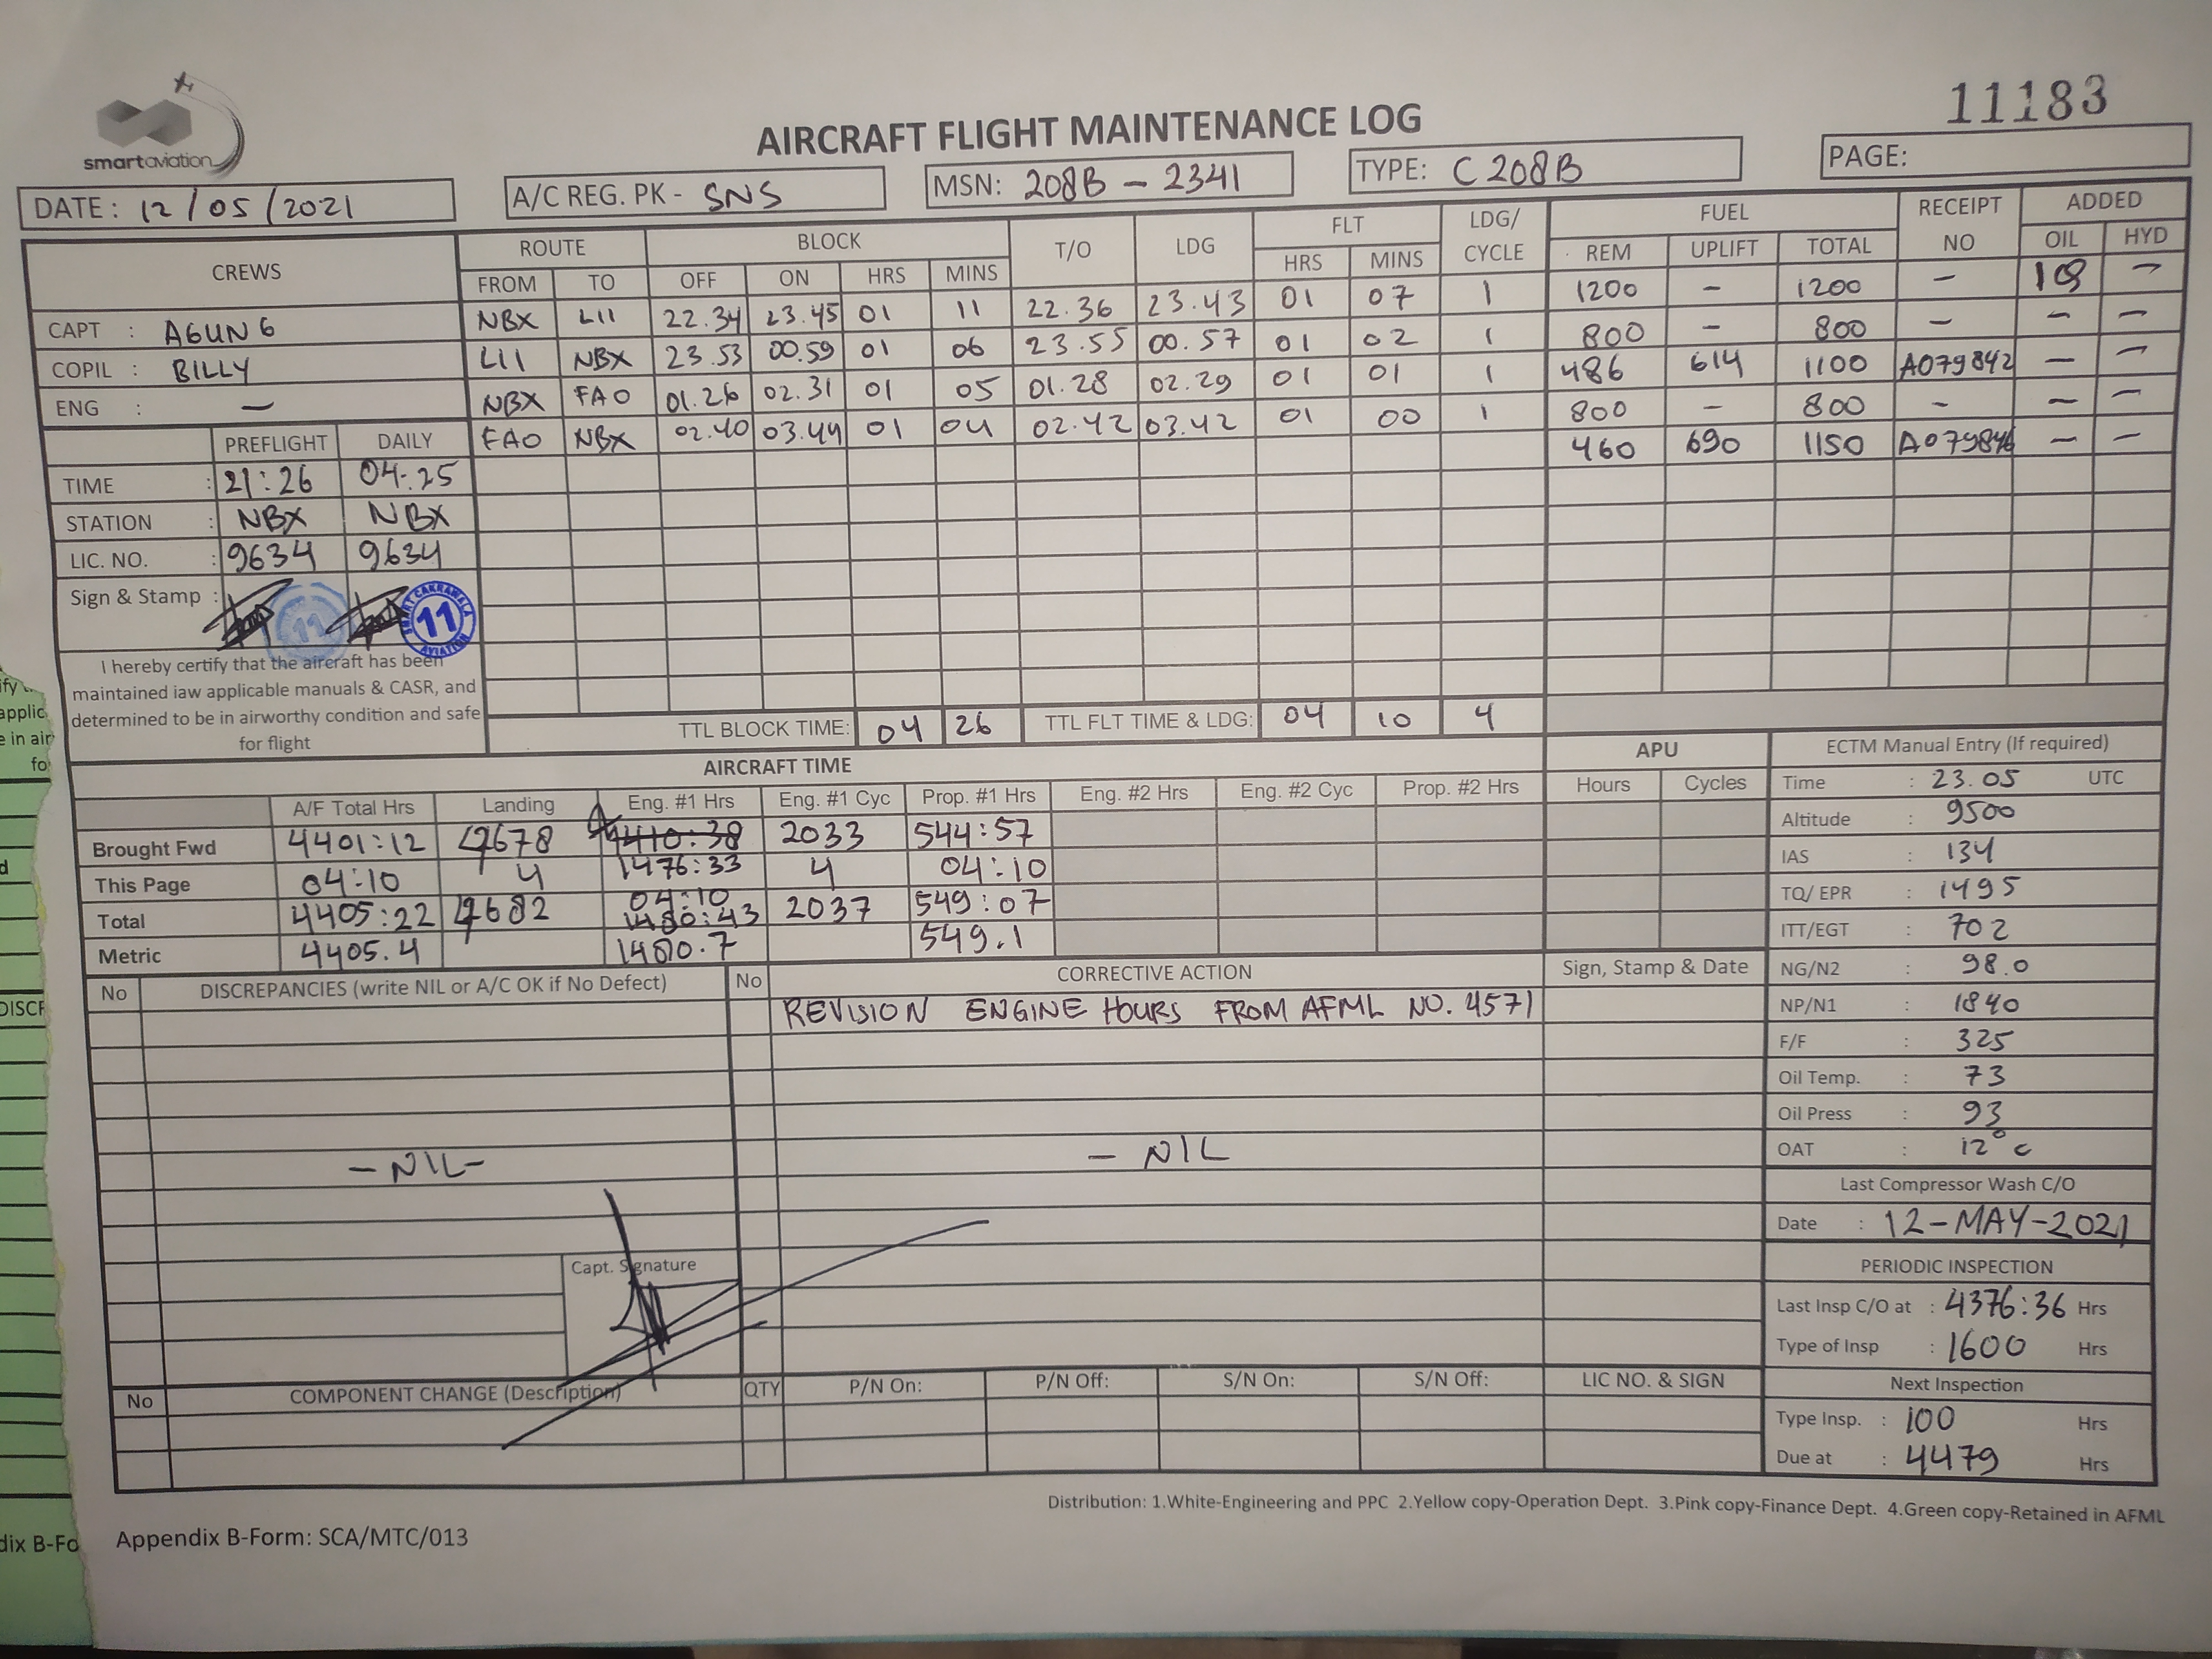 smartaviation
11183
AIRCRAFT FLIGHT MAINTENANCE LOG
DATE: 12/05/2021 A/C REG. PK - SNS MSN: 208B - 2341 TYPE: C 208B PAGE:
CREWS ROUTE BLOCK T/O LDG FLT LDG/CYCLE FUEL RECEIPT NO ADDED
FROM TO OFF ON HRS MINS HRS MINS REM UPLIFT TOTAL OIL HYD
CAPT : AGUNG NBX LII 22.34 23.45 01 11 22.36 23.43 01 07 1 1200 - 1200 - -
COPIL : BILLY LII NBX 23.53 00.59 01 06 23.55 00.57 01 02 1 800 - 800 - - -
ENG : - NBX FAO 01.26 02.31 01 05 01.28 02.29 01 01 1 486 614 1100 A079842 - -
FAO NBX 02.40 03.44 01 04 02.42 03.42 01 00 1 800 - 800 - - -
460 690 1150 A079846 - -
PREFLIGHT DAILY
TIME : 21:26 04:25
STATION : NBX NBX
LIC. NO. : 9634 9634
Sign & Stamp :
11
SMART CAKRAWALA AVIATION 11
I hereby certify that the aircraft has been
maintained iaw applicable manuals & CASR, and
determined to be in airworthy condition and safe
for flight
TTL BLOCK TIME: 04 26 TTL FLT TIME & LDG: 04 10 4
AIRCRAFT TIME
A/F Total Hrs Landing Eng. #1 Hrs Eng. #1 Cyc Prop. #1 Hrs Eng. #2 Hrs Eng. #2 Cyc Prop. #2 Hrs
Brought Fwd 4401:12 4410:38 2033 544:57
This Page 04:10 4 1476:33 4 04:10
04:10
Total 4405:22 1480:43 2037 549:07
Metric 4405.4 1480.7 549.1
APU
Hours Cycles
ECTM Manual Entry (If required)
Time : 23.05 UTC
Altitude : 9500
IAS : 134
TQ/ EPR : 1495
ITT/EGT : 702
NG/N2 : 98.0
NP/N1 : 1840
F/F : 325
Oil Temp. : 73
Oil Press : 93
OAT : 12°C
Last Compressor Wash C/O
Date : 12-MAY-2021
PERIODIC INSPECTION
Last Insp C/O at : 4376:36 Hrs
Type of Insp : 1600 Hrs
Next Inspection
Type Insp. : 100 Hrs
Due at : 4479 Hrs
No DISCREPANCIES (write NIL or A/C OK if No Defect) No CORRECTIVE ACTION Sign, Stamp & Date
REVISION ENGINE HOURS FROM AFML NO. 4571
-NIL- - NIL
Capt. Signature
No COMPONENT CHANGE (Description) QTY P/N On: P/N Off: S/N On: S/N Off: LIC NO. & SIGN
Distribution: 1.White-Engineering and PPC 2.Yellow copy-Operation Dept. 3.Pink copy-Finance Dept. 4.Green copy-Retained in AFML
Appendix B-Form: SCA/MTC/013